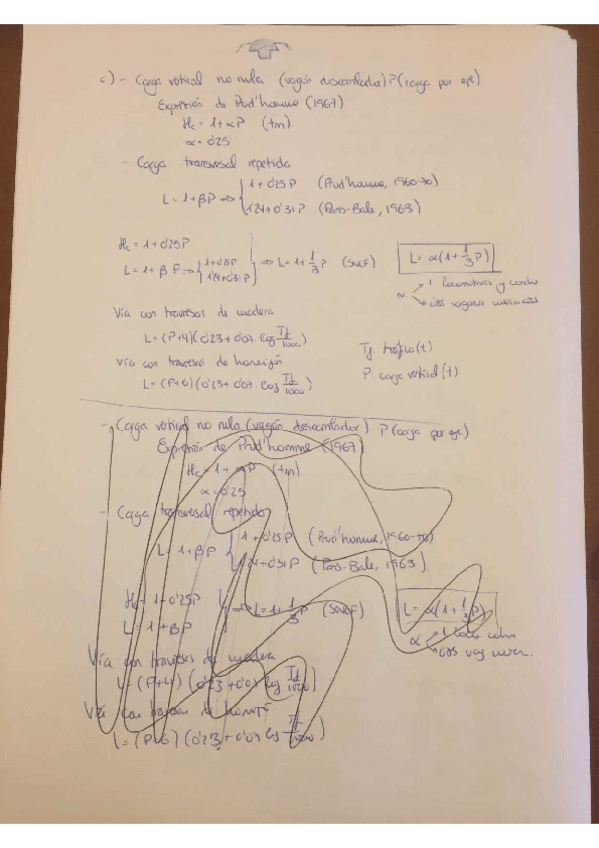 c) - Carga vertical no nula (vagón descarrilador) P (carga por eje)
Expresión de Prud'homme (1967)
Hc = 1 + αP (tm)
α = 0'25
- Carga transversal repetida
L = 1 + βP ⇒ { 1 + 0'25P (Prud'homme, 1960-70)
1'24 + 0'31P (Pons-Bale, 1963)
Hc = 1 + 0'25P
L = 1 + β P ⇒ { 1 + 0'25P
1'24 + 0'31P } ⇒ L = 1 + 1/3 P (SNCF)
L = α(1 + 1/3 P)
α → 1 locomotoras y coches
→ 0'85 vagones mercancías
Vía con traviesas de madera
L = (P+4)(0'23 + 0'07 · log Tf/1000)
Tf: tráfico (t)
Vía con traviesas de hormigón
P: carga vertical (t)
L = (P+6)(0'23 + 0'07 · log Tf/1000)
- Carga vertical no nula (vagón descarrilador) P (carga por eje)
Expresión de Prud'homme (1967)
Hc = 1 + αP (tm)
α = 0'25
- Carga transversal repetida
L = 1 + βP { 1 + 0'25P (Prud'homme, 1960-70)
1'24 + 0'31P (Pons-Bale, 1963)
Hc = 1 + 0'25P
L = 1 + βP } ⇒ L = 1 + 1/3 P (SNCF)
L = α(1 + 1/3 P)
α → 1 locos coches
→ 0'85 vag mercan.
Vía con traviesas de madera
L = (P+4)(0'23 + 0'07 log Tf/1000)
Vía con traviesas de hormig
L = (P+6)(0'23 + 0'07 log Tf/1000)